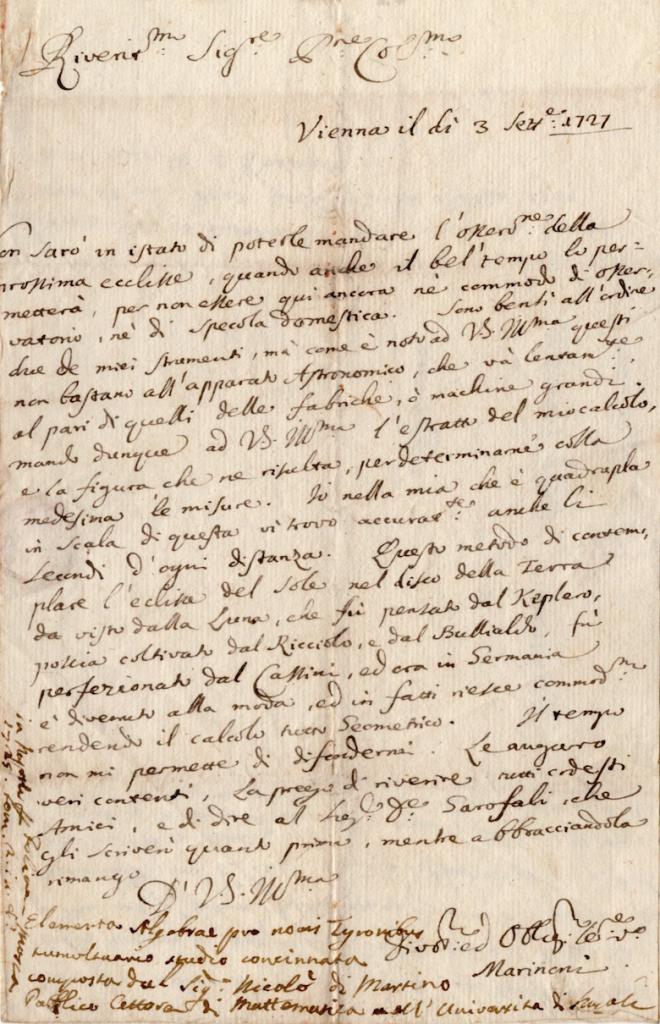 Riverit.mo Sig.re P.ne Col.mo
Vienna il dì 3 Sett.e 1727
on sarò in istato di poterle mandare l'osser.ne della
prossima ecclisse, quando anche il bel tempo lo per-
metterà, per non essere qui ancora nè commodo di osser-
vatorio, nè di specola domestica. Sono bensì all'ordine
due de miei strumenti, mà come è noto ad V.S. Ill.ma questi
non bastano all'apparato Astronomico, che và lentam.te
al pari di quelli delle fabriche, ò machine grandi.
mando dunque ad V.S. Ill.ma l'estratto del mio calcolo,
e la figura che ne risulta, per determinarne colla
medesima le misure. Io nella mia che è quadrupla
in scala di questa vi trovo accurat.te anche li
secondi d'ogni distanza. Questo metodo di contem-
plare l'eclisse del Sole nel disco della Terra
da visto dalla Luna, che fù pensato dal Keplero,
poscia coltivato dal Ricciolo, e dal Bullialdo, fù
perfezionato dal Cassini, ed ora in Germania
è divenuto alla moda, ed in fatti riesce commod.m
rendendo il calcolo tutto Geometrico. Il tempo
non mi permette di difondermi. Le auguro
veri contenti, La prego di riverire tutti codesti
Amici, e di dire al Sig. D.e Garofali, che
gli scriverò quanto prima, mentre abbracciandola
rimango
D' V.S. Ill.ma
Divot. ed Obblig. Se.re v.o
Marinoni
Elementa Algebrae pro novis Tyronibus
tumultuario studio concinnata
composta dal Sig. Nicolò di Martino
Pubblico Lettore di Mattematica nell'Università di Napoli
1725. tom.